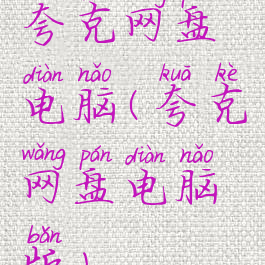 夸克网盘
diàn nǎo kuā kè
电脑(夸克
wǎng pán diàn nǎo
网盘电脑
bǎn
版)